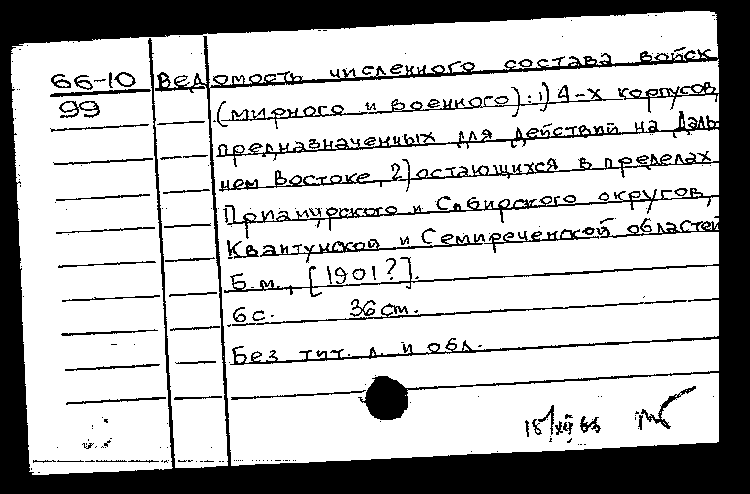 66-10 Ведомость численного состава войск
99 (мирного и военного): 1) 4-х корпусов,
предназначенных для действий на Даль-
нем Востоке, 2) остающихся в пределах
Приамурского и Сибирского округов,
Квантунской и Семиреченской областей
Б.м., [1901?].
6с. 36см.
Без тит. л. и обл.
18/XII 66